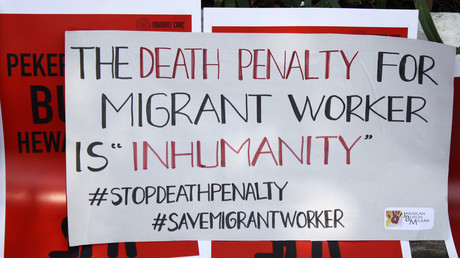 MIGRANT CARE
PEKER
BU
HEWA
THE DEATH PENALTY FOR
MIGRANT WORKER
IS "INHUMANITY"
#STOPDEATHPENALTY
#SAVEMIGRANTWORKER